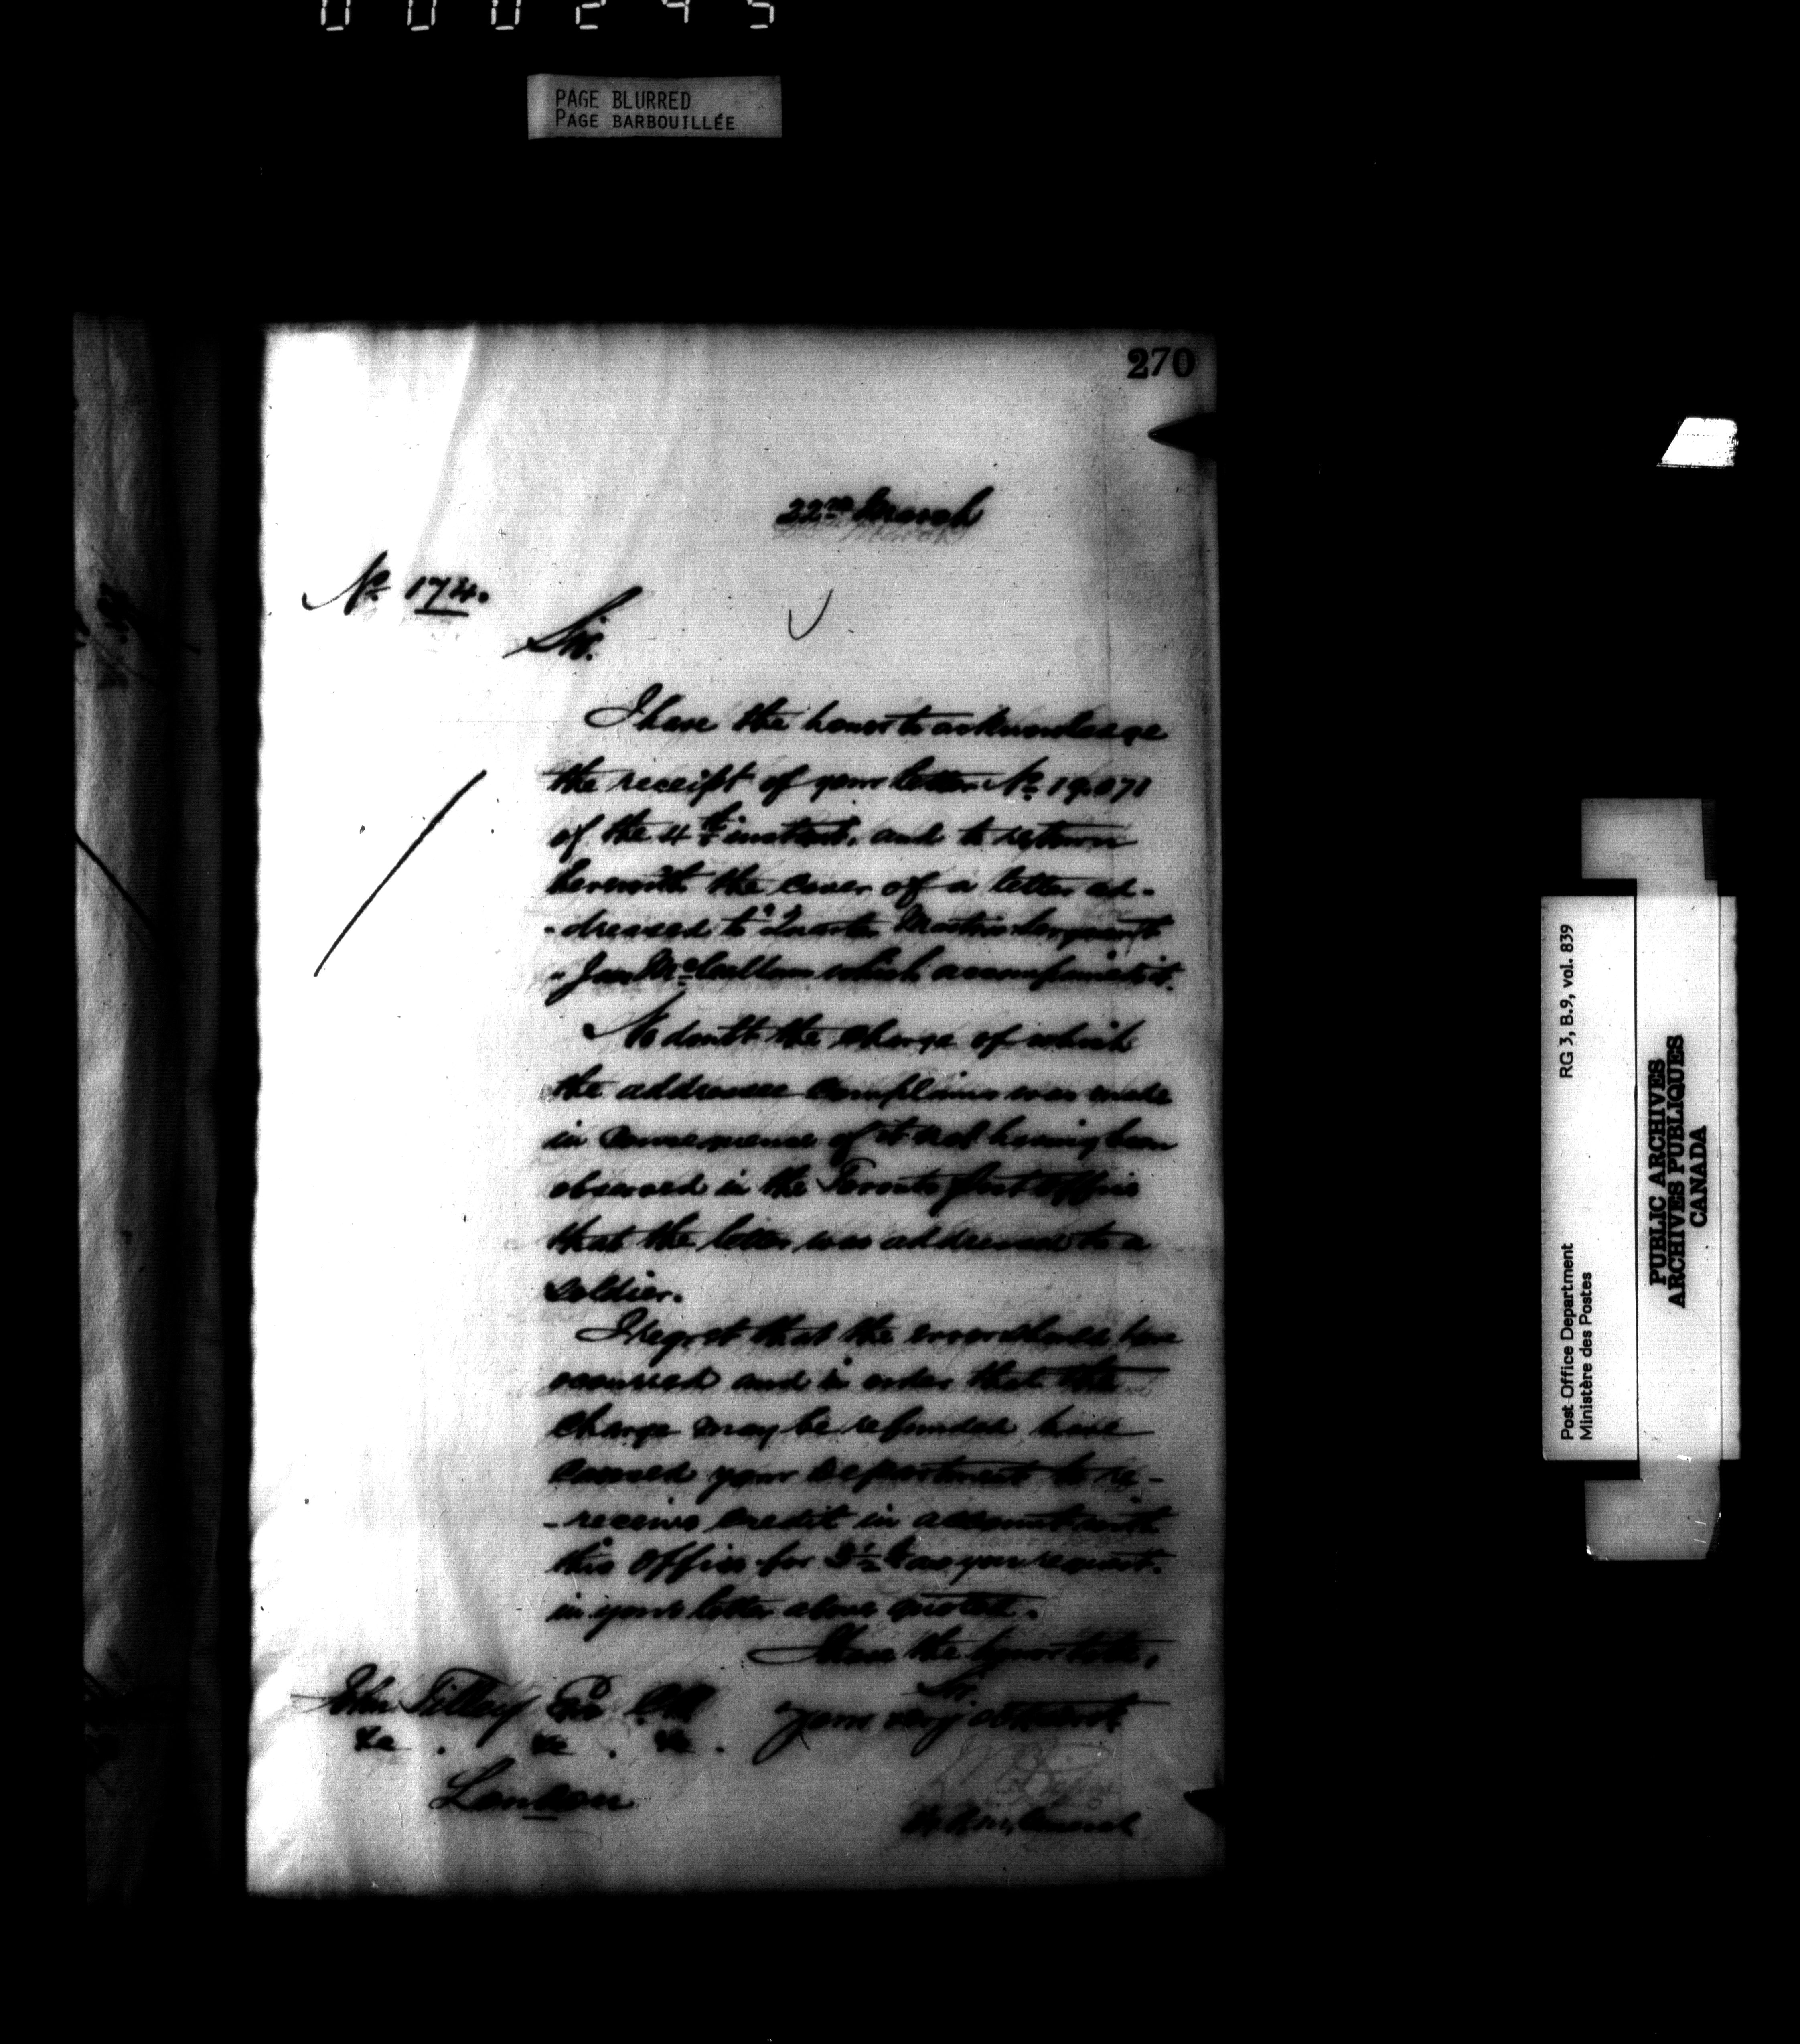 000245
PAGE BLURRED
PAGE BARBOUILLÉE
270
22nd March
No 174.
Sir.
I have the honor to acknowledge
the receipt of your letter No 19.071
of the 4th instant, and to return
herewith the cover of a letter ad-
-dressed to Quarter Master Sergeant
- McCallum which accompanied it.
No doubt the charge of which
the addressee complains was made
in consequence of it not having been
observed in the Toronto Post Office
that the letter was addressed to a
soldier.
I regret that the error should have
occurred and in order that the
charge may be refunded have
caused your Department to re-
-receive credit in account with
this Office for as you request.
in your letter above quoted.
I have the honor to be,
Sir.
Your very obedient
John Tilley Esq
&c . &c . &c .
London
General
Post Office Department
Ministère des Postes
RG 3, B.9, vol. 839
PUBLIC ARCHIVES
ARCHIVES PUBLIQUES
CANADA